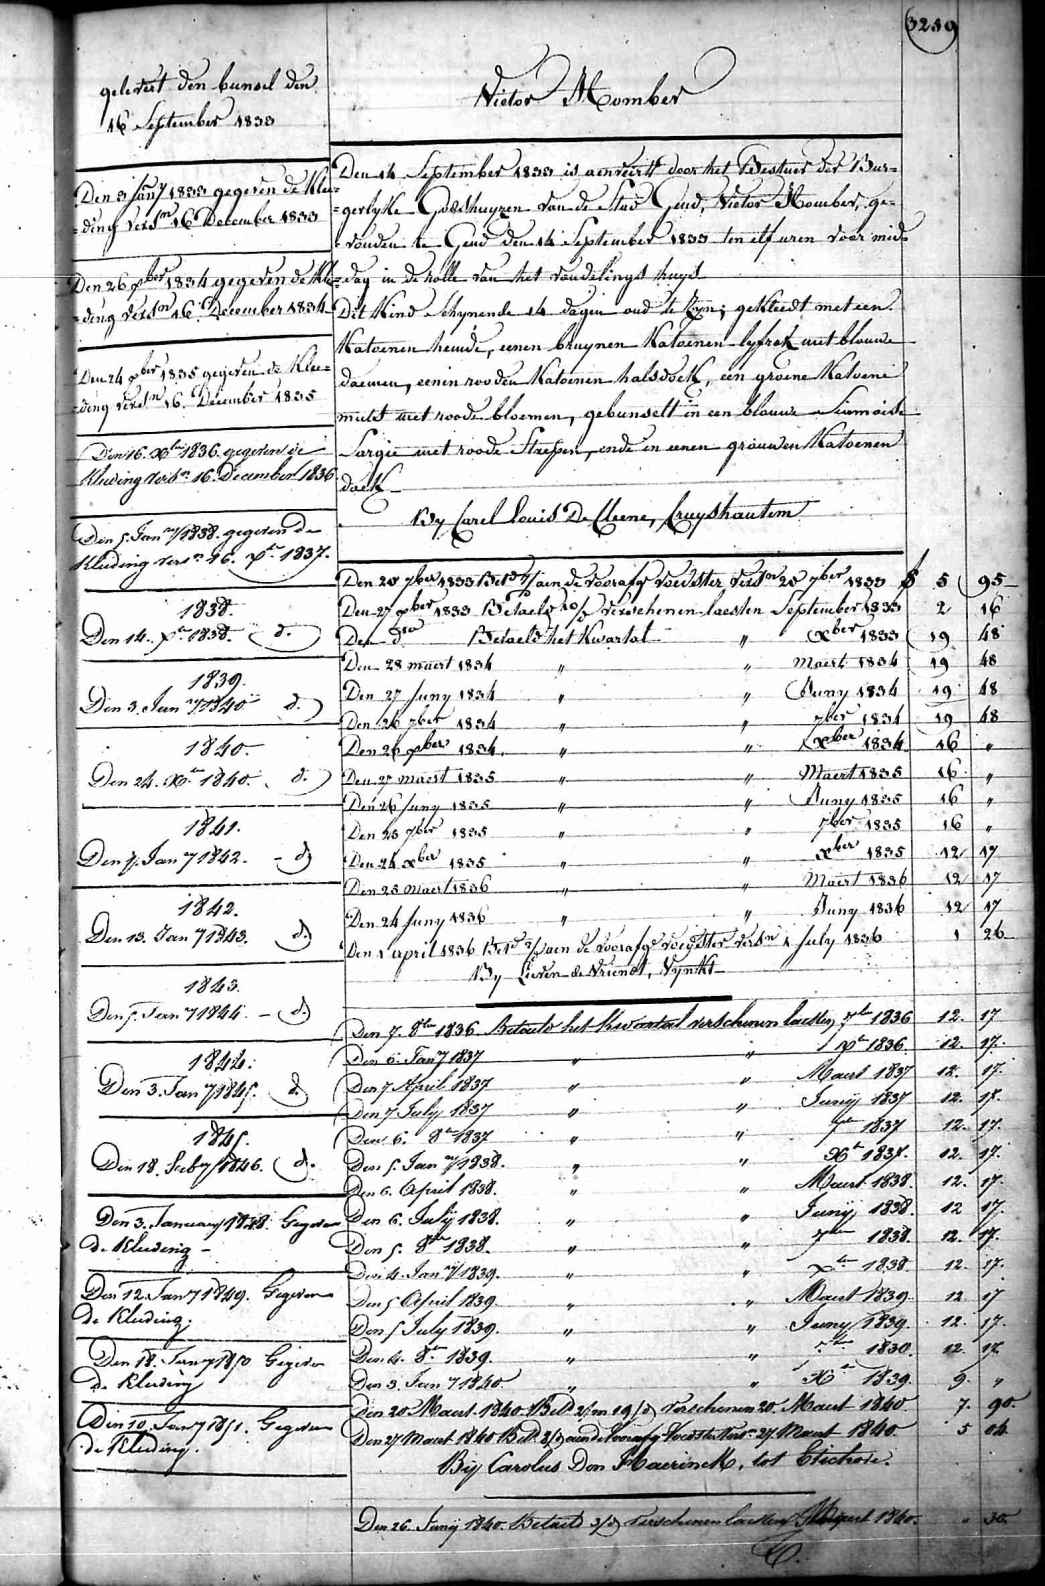 3259
gelevert den bunsel den
16 September 1833
Victor Momber
Den 3 Jany 1833 gegeven de Klee=
=ding versn 16 December 1833
Den 26 xber 1834 gegeven de Kle
=ding versn 16 December 1834
Den 24 xber 1835 gegeven de Klee=
=ding versn 16 December 1835
Den 16 Xber 1836 gegeven de
Kleeding versn 16 December 1836
Den 5 Jany 1838 gegeven de
Kleeding versn 16 xr 1837.
1838.
Den 14 xr 1838. d.
1839.
Den 3 Jany 1840 d.
1840.
Den 24 Xr 1840. d.
1841.
Den 7 Jany 1842. - d
1842.
Den 13. Jany 1843. d
1843.
Den 5. Jany 1844. - d
1844.
Den 3. Jany 1845. d.
1845.
Den 18. Feby 1846. d.
Den 3. January 1848. Gegeven
de Kleeding -
Den 12 Jany 1849. Gegeven
de Kleeding.
Den 18. Jany 1850 Gegeven
de Kleeding
Den 10. Jany 1851. Gegeven
de Kleeding.
Den 14 September 1833 is aenveirt door het Bestuer der Bur=
=gerlyke Godshuyzen van de Stad Gend, Victor Momber, ge=
=vonden te Gend den 14 September 1833 ten elf uren voor mid=
=dag in de rolle van het vondelings huys
Dit Kind schynende 14 dagen oud te zyn; gekleedt met een
Katoenen hemde, eenen bruynen Katoenen lyfrok met blouwe
daemen, eenen rooden Katoenen halsdoek, een groene Katoene
muts met roode bloemen, gebunselt in een blouwe Siamoise
Sargie met roode Streepen, ende in eenen grauwen Katoenen
doek
By Carel Louis De Cleene, Cruyshautem
Den 20 7ber 1833 aen de voorafg Voedster versn 20 7ber 1833 5 95
Den 27 xber 1833 Betaeld verschenen laesten September 1833 2 16
Den do Betaeld het Kwartal " xber 1833 19 48
Den 28 maert 1834 " " Maert 1834 19 48
Den 27 Juny 1834 " " Juny 1834 19 48
Den 26 7ber 1834 " " 7ber 1834 19 48
Den 26 xber 1834 " " xber 1834 16 "
Den 27 maert 1835 " " Maert 1835 16 "
Den 26 Juny 1835 " " Juny 1835 16 "
Den 25 7ber 1835 " " 7ber 1835 16 "
Den 24 xber 1835 " " xber 1835 12 17
Den 25 maert 1836 " " Maert 1836 12 17
Den 24 Juny 1836 " " Juny 1836 12 17
Den 1 april 1836 aen de voorafge voedster versn 1 July 1836 1 26
By Lieven de Vriendt, Vynkt
Den 7. 8ber 1836 Betaeld het Kwartaal verschenen laesten 7ber 1836 12. 17
Den 6 Jany 1837 " " xr 1836. 12. 17.
Den 7 April 1837 " " Maert 1837 12. 17.
Den 7 July 1837 " " Junij 1837 12. 17.
Den 6. 8r 1837 " " 7r 1837 12. 17.
Den 5. Jany 1838. " " Xr 1837. 12. 17.
Den 6. April 1838. " " Maert 1838. 12. 17.
Den 6. Julij 1838. " " Junij 1838. 12 17.
Den 5. 8ber 1838. " " 7ber 1838. 12. 17.
Den 4. Jany 1839. " " xber 1838 12. 17.
Den 5 April 1839. " " Maert 1839. 12 17
Den 5 July 1839. " " Juny 1839. 12. 17.
Den 4. 8r 1839. " " 1839. 12. 17.
Den 3. Jany 1840 " " Xr 1839. 9. "
Den 20 Maert 1840 verschenen 20 Maert 1840 7. 90.
Den 27 Maert 1840 aen de voorafg Voedster versn 27 Maert 1840 5 04
Bij Carolus Don Haerinck, tot Etichove.
Den 26. Junij 1840. Betaeld verschenen laesten Maert 1840. " 30